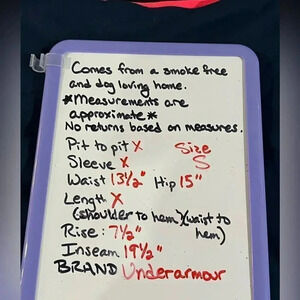 Comes from a smoke free
and dog loving home.
*Measurements are
approximate*
No returns based on measures.
Pit to pit X Size
Sleeve X S
Waist 13½" Hip 15"
Length X
(shoulder to hem)(waist to
hem)
Rise: 7½"
Inseam 19½"
BRAND Underarmour